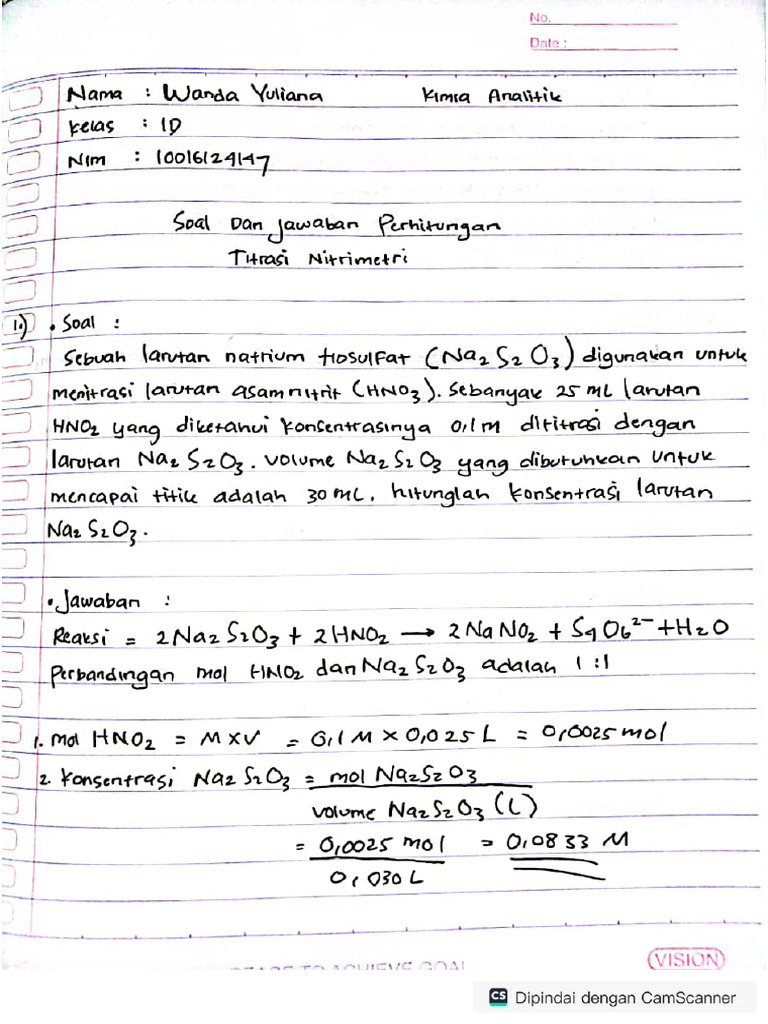 No.
Date :
Nama : Wanda Yuliana Kimia Analitik
Kelas : 1D
Nim : 10016124147
Soal Dan Jawaban Perhitungan
Titrasi Nitrimetri
1.) • Soal :
Sebuah larutan natrium tiosulfat (Na2 S2 O3) digunakan untuk
menitrasi larutan asam nitrit (HNO3). Sebanyak 25 mL larutan
HNO2 yang diketahui konsentrasinya 0,1 M dititrasi dengan
larutan Na2 S2O3. Volume Na2 S2 O3 yang dibutuhkan untuk
mencapai titik adalah 30 mL. hitunglah konsentrasi larutan
Na2 S2O3.
• Jawaban :
Reaksi = 2Na2 S2O3 + 2HNO2 → 2 Na NO2 + S4 O6²⁻ + H2O
Perbandingan mol HNO2 dan Na2 S2O3 adalah 1 : 1
1. mol HNO2 = M x V = 0,1 M x 0,025 L = 0,0025 mol
2. Konsentrasi Na2 S2O3 = mol Na2S2O3
volume Na2 S2 O3 (L)
= 0,0025 mol = 0,0833 M
0,030 L
VISION
CS Dipindai dengan CamScanner